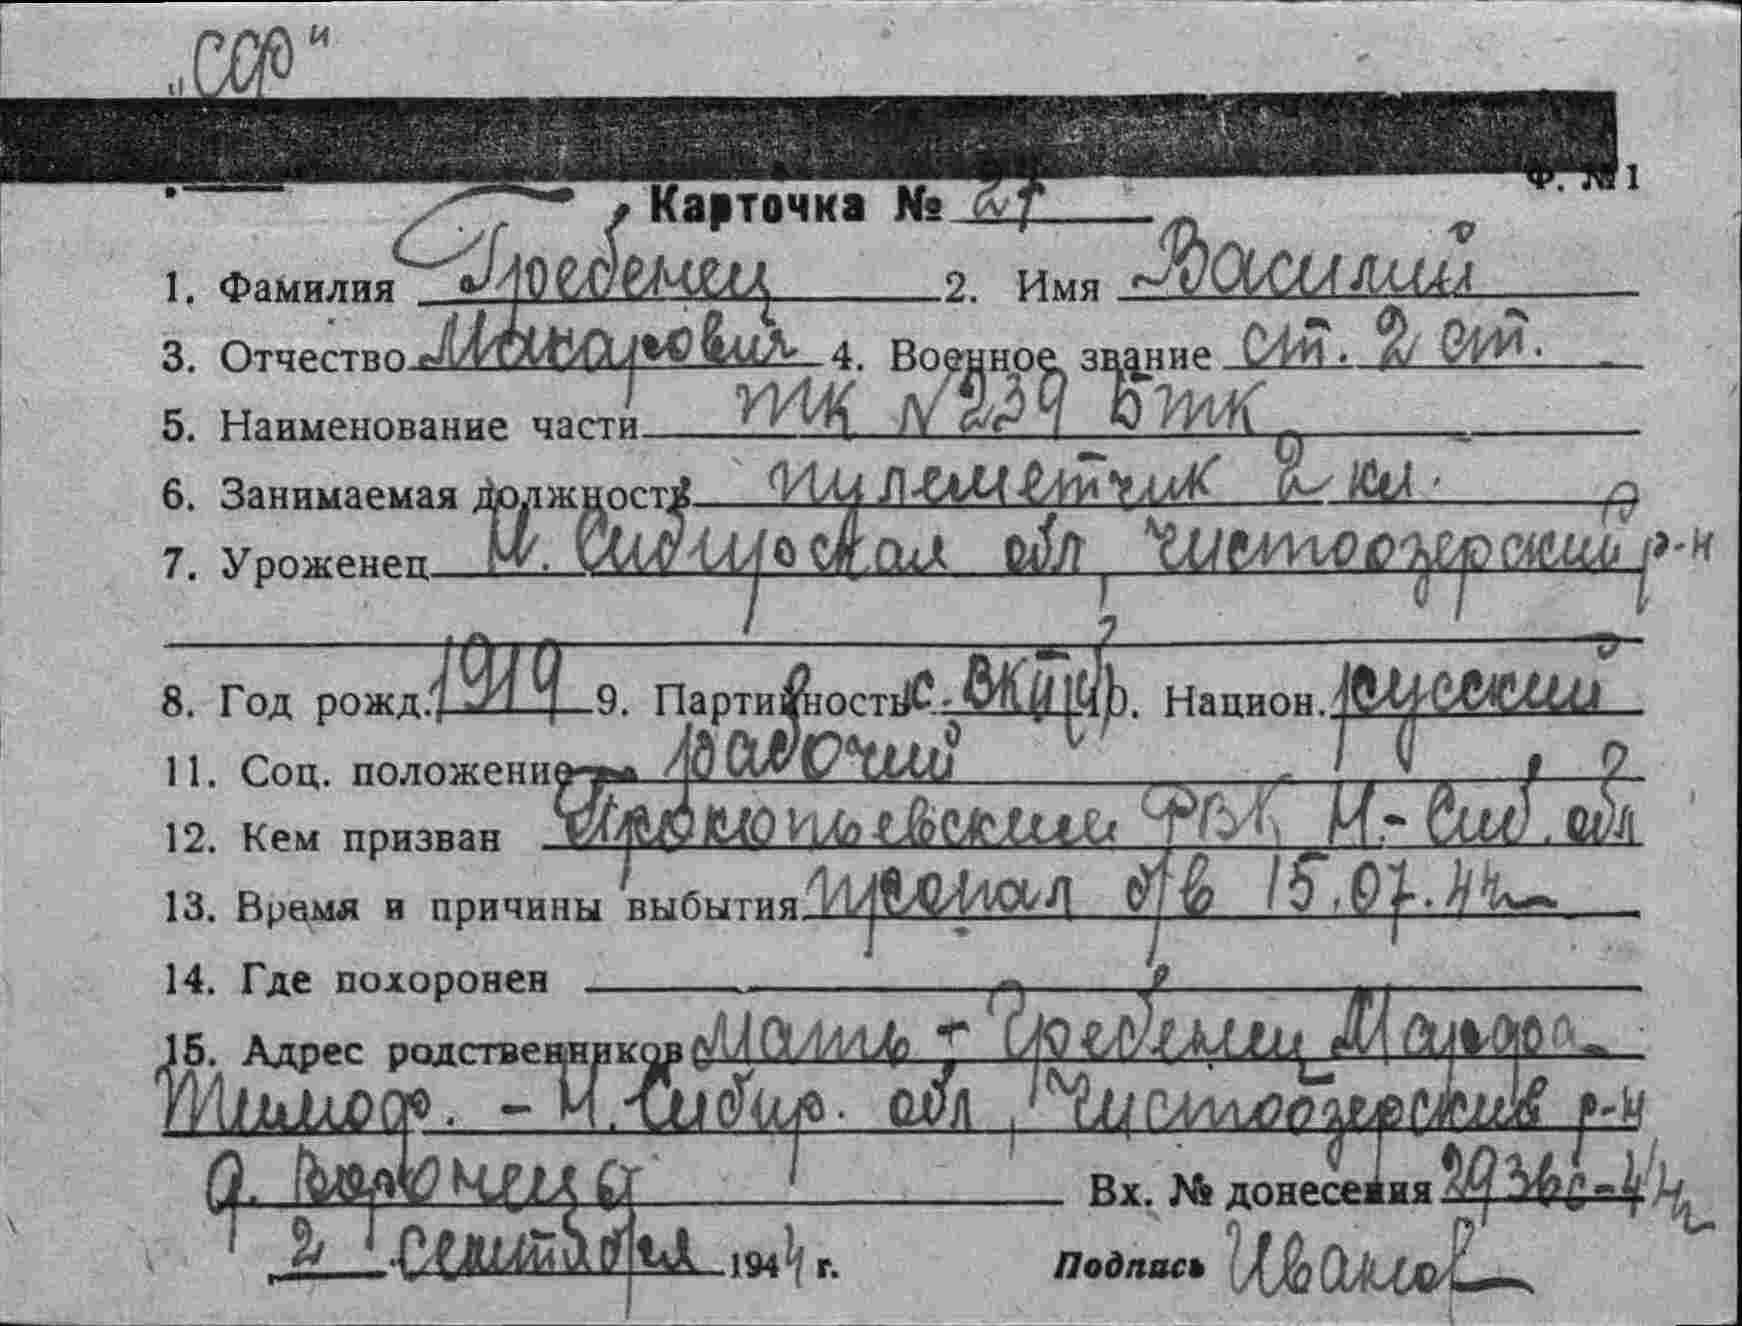 „ССФ"
Ф. № 1
Карточка № 27
1. Фамилия Гребенец 2. Имя Василий
3. Отчество Макарович 4. Военное звание ст. 2 ст.
5. Наименование части ТК № 239 БТК
6. Занимаемая должность пулеметчик 2 кл.
7. Уроженец Н. Сибирская обл, Чистоозерский р-н
8. Год рожд. 1919 9. Партийность с. ВКП(б) 10. Национ. русский
11. Соц. положение рабочий
12. Кем призван Прокопьевским РВК Н.-Сиб. обл
13. Время и причины выбытия пропал б/в 15.07.44
14. Где похоронен
15. Адрес родственников Мать - Гребенец Марфа
Тимоф. - Н. Сибир. обл, Чистоозерский р-н
д. Воронецы Вх. № донесения
2 сентября 1944 г. Подпись Иванов